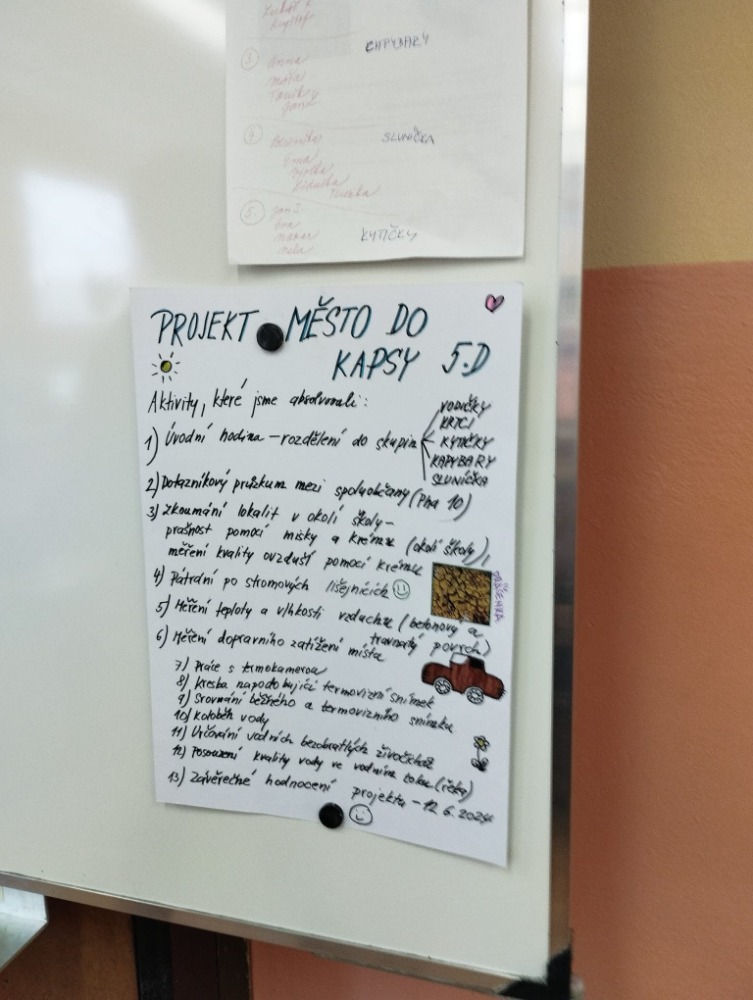 Kryštof
3. Anna
KAPYBARY
Jana
4. Veronika
SLUNÍČKA
Ema
5. Jan S.
Eva
KYTIČKY
Nela
PROJEKT MĚSTO DO
KAPSY 5.D
Aktivity, které jsme absolvovali:
VODIČKY
KRTCI
1) Úvodní hodina – rozdělení do skupin
KYTIČKY
KAPYBARY
SLUNÍČKA
2) Dotazníkový průzkum mezi spoluobčany (Pha 10)
3) Zkoumání lokalit v okolí školy –
prašnost pomocí misky a krému (okolí školy),
měření kvality ovzduší pomocí krému
4) Pátrání po stromových lišejnících
5) Měření teploty a vlhkosti vzduchu (betonový a
travnatý povrch)
6) Měření dopravního zatížení místa
7) Práce s termokamerou
8) Kresba napodobující termovizní snímek
9) Srovnání běžného a termovizního snímku
10) Koloběh vody
11) Určování vodních bezobratlých živočichů
12) Posouzení kvality vody ve vodním toku (řeka)
13) Závěrečné hodnocení projektu – 12. 6. 2024